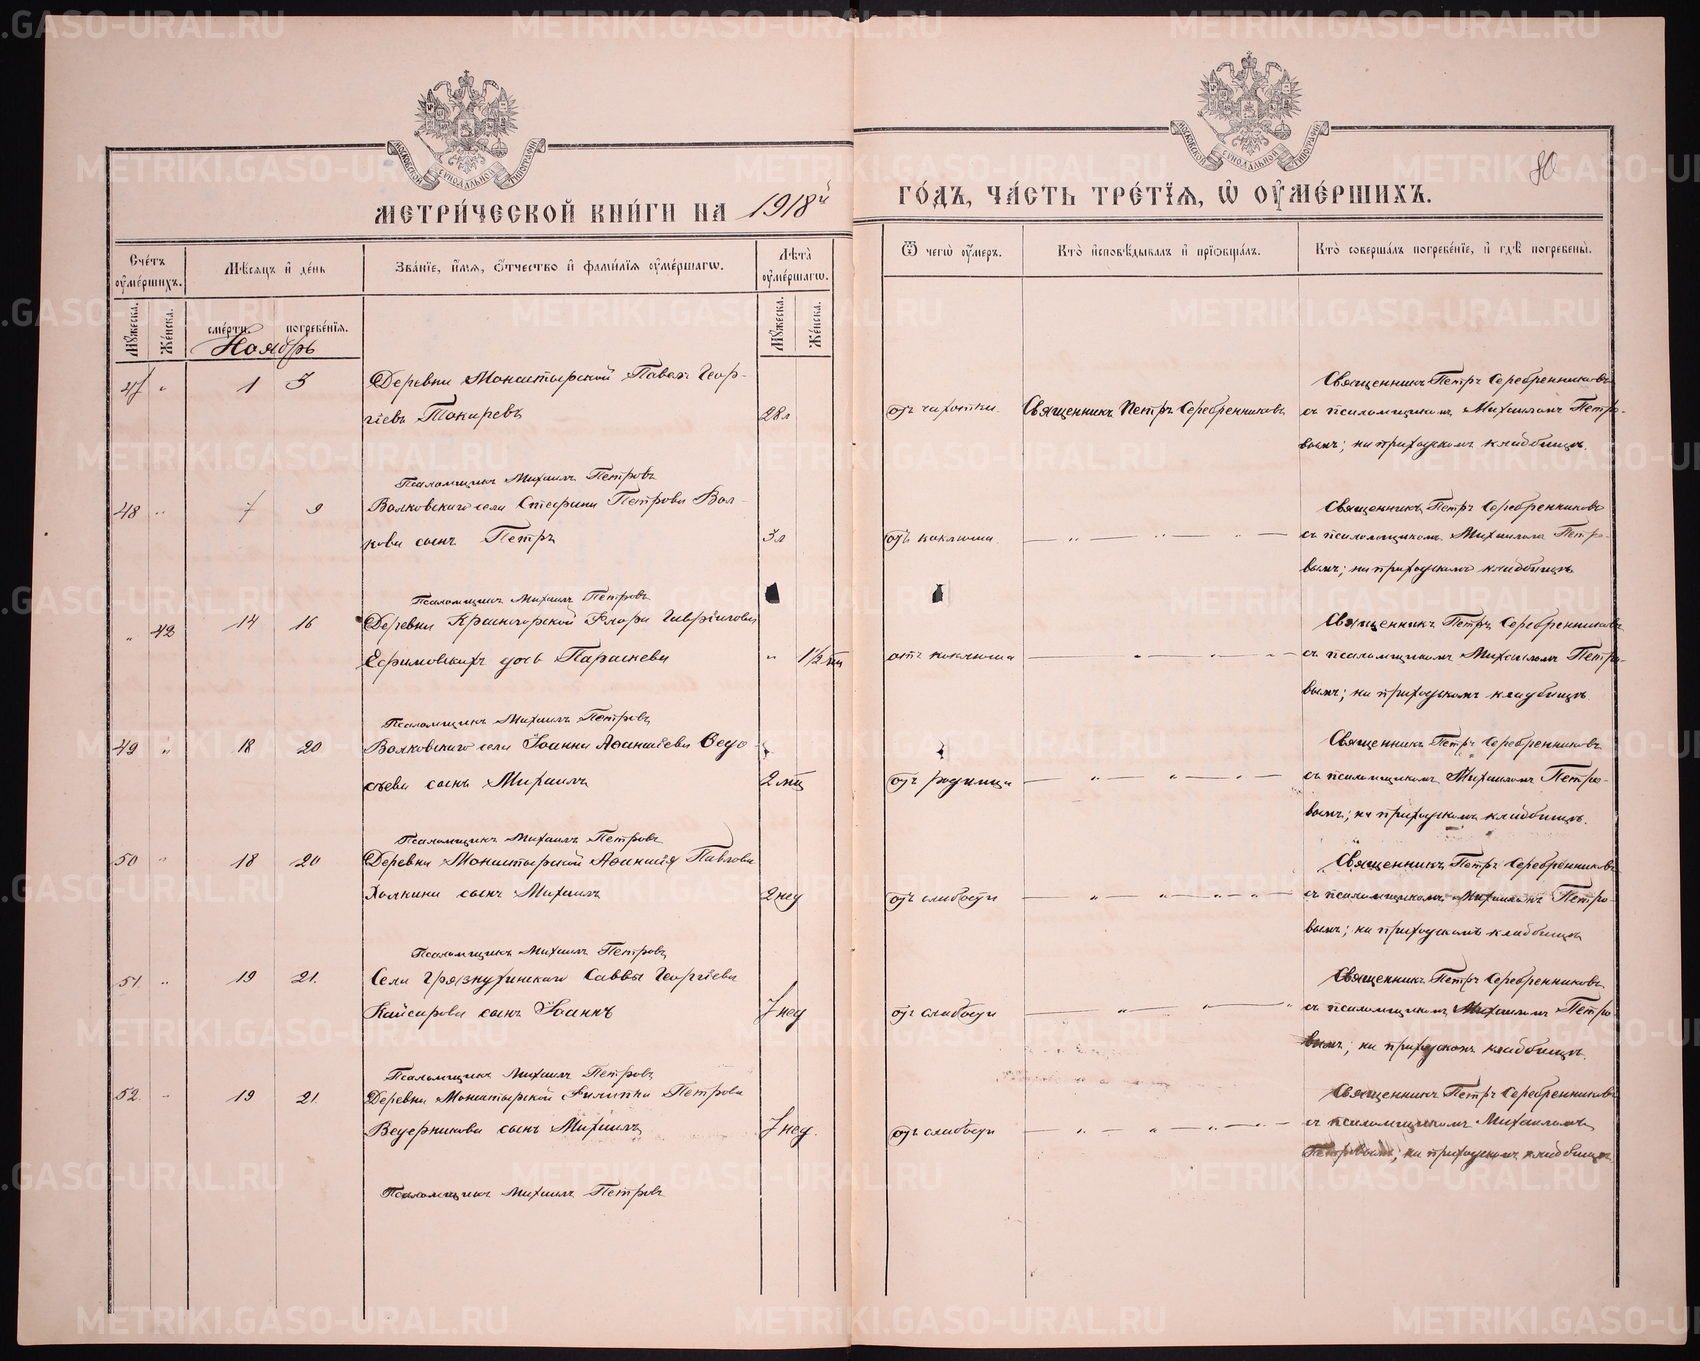 МЕТРИ́ЧЕСКОЙ КНИ́ГИ НА 1918й
ГО́ДЪ, ЧА́СТЬ ТРЕ́ТЇѦ, Ѡ҆ ОУ҆МЕ́РШИХЪ.
80
Сче́тъ оу҆ме́ршихъ.
Мѣ́сяцъ и҆ де́нь
Зва́нїе, и҆́мѧ, ѻ҆́тчество и҆ фами́лїѧ оу҆ме́ршагѡ.
Лѣ́та оу҆ме́ршагѡ.
Ѿ чегѡ̀ оу҆́меръ.
Кто̀ и҆сповѣ́дывалъ и҆ прїѻбща́лъ.
Кто̀ соверша́лъ погребе́нїе, и҆ гдѣ̀ погребены̀.
Мꙋ́жеска.
Же́нска.
сме́рти.
погребе́нїѧ.
Мꙋ́жеска.
Же́нска.
Ноябрь
47 " 1 3 Деревни Монастырской Павел Геор-
гіевъ Токаревъ 28л отъ чахотки Священникъ Петръ Серебренниковъ
Священникъ Петръ Серебренниковъ
съ псаломщикомъ Михаиломъ Петро-
вымъ; на приходскомъ кладбищѣ.
Псаломщикъ Михаилъ Петровъ
48 " 7 9 Волковскаго села Стефана Петрова Вол-
кова сынъ Петръ 3л отъ коклюша — " — " — " —
Священникъ Петръ Серебренниковъ
съ псаломщикомъ Михаиломъ Петро-
вымъ; на приходскомъ кладбищѣ
Псаломщикъ Михаилъ Петровъ
" 42 14 16 Деревни Красногорской Флора Гавріилова
Ефимовскихъ дочь Параскева " 1½ отъ коклюша
Священникъ Петръ Серебренниковъ
съ псаломщикомъ Михаиломъ Петро-
вымъ; на приходскомъ кладбищѣ
Псаломщикъ Михаилъ Петровъ
49 " 18 20 Волковскаго села Іоанна Аѳанасіева Ѳедо-
сѣева сынъ Михаилъ 2 мц отъ родимца — " — " — " —
Священникъ Петръ Серебренниковъ
съ псаломщикомъ Михаиломъ Петро-
вымъ; на приходскомъ кладбищѣ.
Псаломщикъ Михаилъ Петровъ
50 " 18 20 Деревни Монастырской Аѳанасія Павлова
Халкина сынъ Михаилъ 2 нед отъ слабости — " — " — " —
Священникъ Петръ Серебренниковъ
съ псаломщикомъ Михаиломъ Петро-
вымъ; на приходскомъ кладбищѣ
Псаломщикъ Михаилъ Петровъ
51. " 19 21. Села Грязнухинскаго Саввы Георгіева
Кайсарова сынъ Іоаннъ 7 нед отъ слабости — " — " —
Священникъ Петръ Серебренниковъ
съ псаломщикомъ Михаиломъ Петро-
вымъ; на приходскомъ кладбищѣ.
Псаломщикъ Михаилъ Петровъ
52. " 19 21. Деревни Монастырской Филиппа Петрова
Ведерникова сынъ Михаилъ 7 нед. отъ слабости — " — " — " —
Священникъ Петръ Серебренниковъ
съ псаломщикомъ Михаиломъ
Петровымъ; на приходскомъ кладбищѣ
Псаломщикъ Михаилъ Петровъ
METRIKI.GASO-URAL.RU